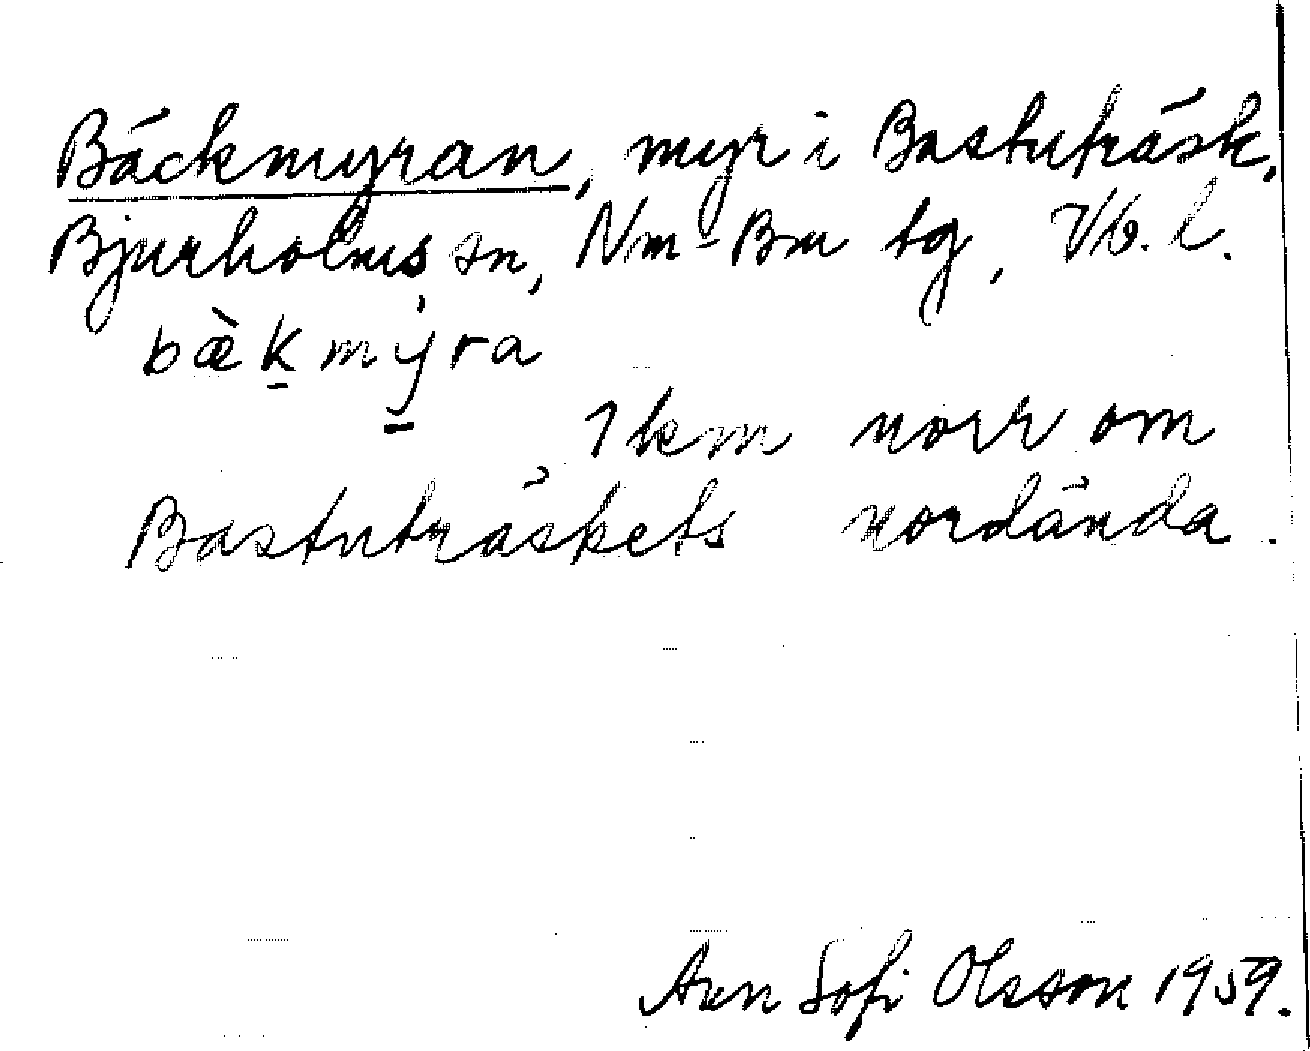 Bäckmyran, myr i Bastuträsk,
Bjurholms sn, Nm-Bm tg, Vb. l.
bæ̀k̠mý̠ra
1 km norr om
Bastuträskets nordända.
Ann Sofi Olsson 1959.